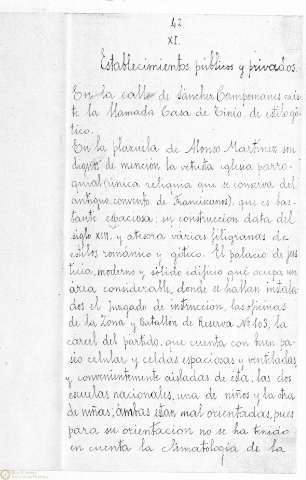 42
XI.
Establecimientos públicos y privados.
En la calle de Sánchez Campomanes exis
te la llamada Casa de Tinio, de estilo gó
tico.
En la plazuela de Alonso Martínez son
dignos de mención la vetusta iglesia parro-
quial (única reliquia que se conserva del
antiguo convento de Franciscanos), que es bas-
tante espaciosa; su construcción data del
siglo XIII, y atesora varias filigranas de
estilos románico y gótico. El palacio de jus
ticia, moderno y sólido edificio que ocupa un
área considerable, donde se hallan instala-
dos el juzgado de instrucción, las oficinas
de la Zona y Batallón de Reserva Nº 105, la
cárcel del partido, que cuenta con buen pa-
sio celular y celdas espaciosas y ventiladas,
y convenientemente aisladas de esta, las dos
escuelas nacionales, una de niños y la otra
de niñas; ámbas están mal orientadas, pues
para su orientación no se ha tenido
en cuenta la climatología de la